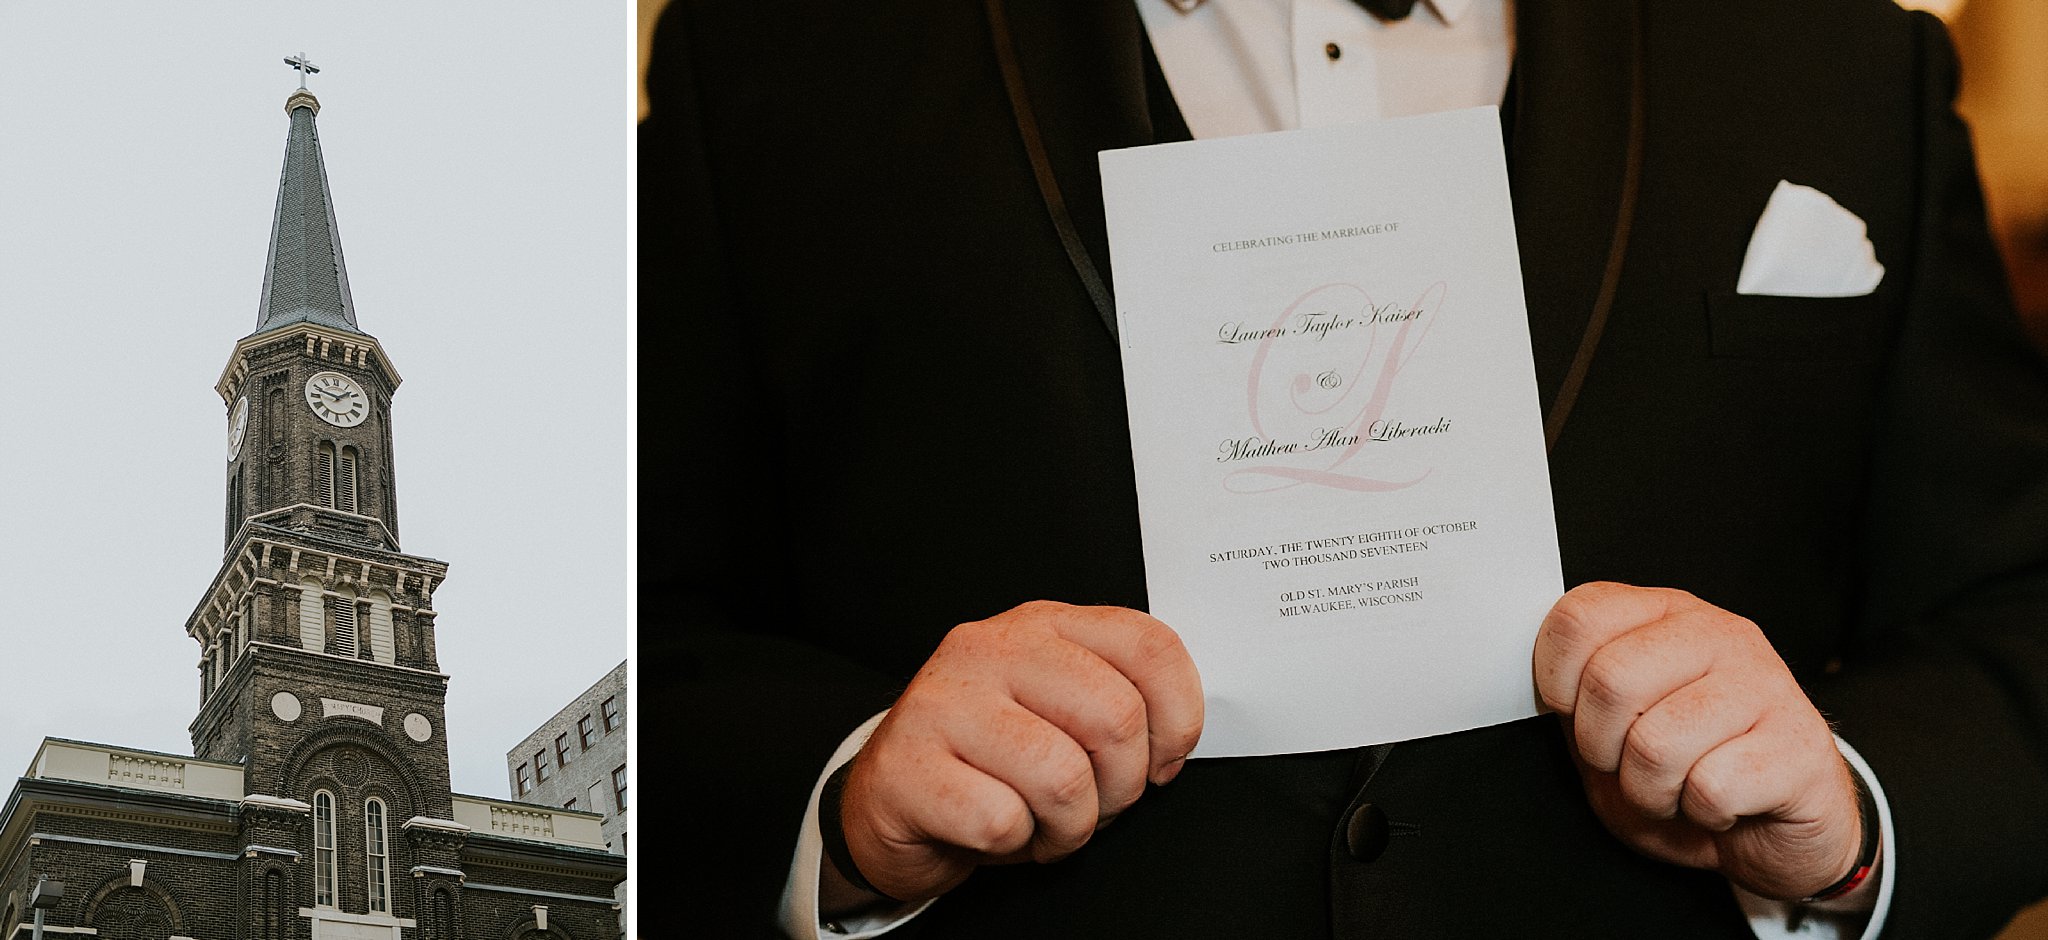 ST. MARY'S CHURCH
CELEBRATING THE MARRIAGE OF
Lauren Taylor Kaiser
&
Matthew Alan Liberacki
L
SATURDAY, THE TWENTY EIGHTH OF OCTOBER
TWO THOUSAND SEVENTEEN
OLD ST. MARY'S PARISH
MILWAUKEE, WISCONSIN